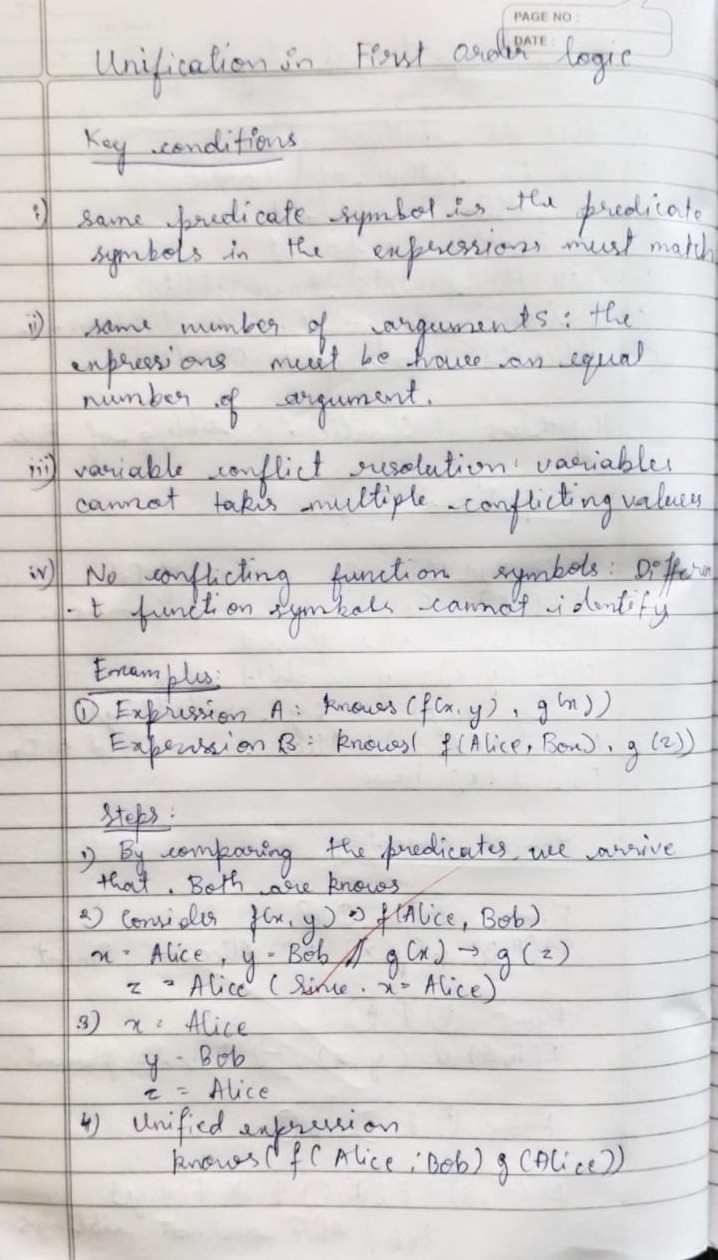 PAGE NO :
DATE :
Unification in First order logic
Key conditions
i) same predicate symbol is the predicate
symbols in the expressions must match
ii) same number of arguments : the
expressions must be have an equal
number of argument.
iii) variable conflict resolution: variables
cannot takes multiple conflicting values
iv) No conflicting function symbols : Differen
- t function symbols cannot identify
Examples:
① Expression A : knows (f(x, y) , g(x))
Expression B : knows( f(Alice, Bob) , g (z))
Steps :
1) By comparing the predicates we arrive
that . Both are knows
2) Consider f(x, y) => f(Alice, Bob)
x = Alice , y = Bob // g(x) → g(z)
z = Alice ( Since . x = Alice)
3) x = Alice
y = Bob
z = Alice
4) Unified expression
knows( f( Alice , Bob) g (Alice))